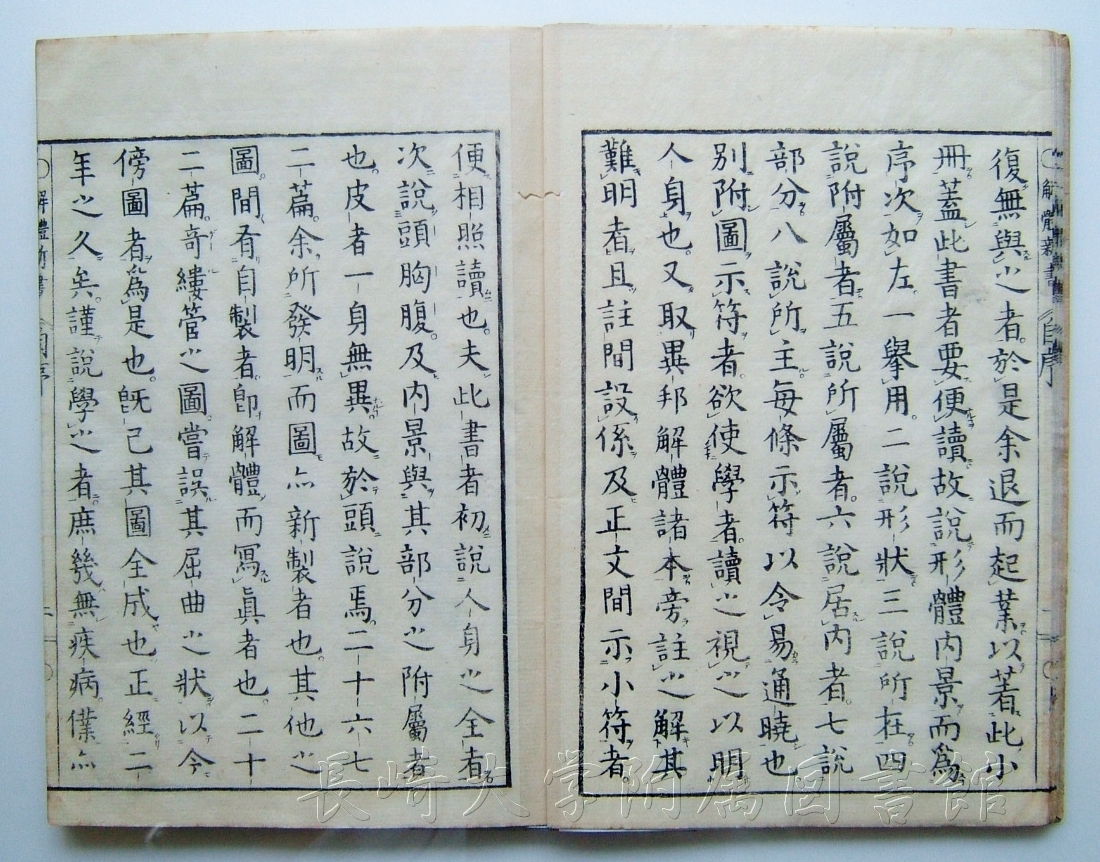 復無與之者於是余退而起業以著此小
冊蓋此書者要便讀故說形體內景而爲
序次如左一擧用二說形狀三說所在四
說附屬者五說所屬者六說居內者七說
部分八說所主每條示符以令易通曉也
別附圖示符者欲使學者讀之視之以明
人身也又取異邦解體諸本旁註之解其
難明者且註間設係及正文間示小符者
便相照讀也夫此書者初說人身之全者
次說頭胸腹及內景與其部分之附屬者
也皮者一身無異故於頭說焉二十六七
二篇余所發明而圖亦新製者也其他之
圖間有自製者卽解體而寫眞者也二十
二篇奇縷管之圖嘗誤其屈曲之狀以今
傍圖者爲是也旣已其圖全成也正經二
年之久矣謹說學之者庶幾無疾病僕亦
解體新書
自序
長崎大学附属図書館